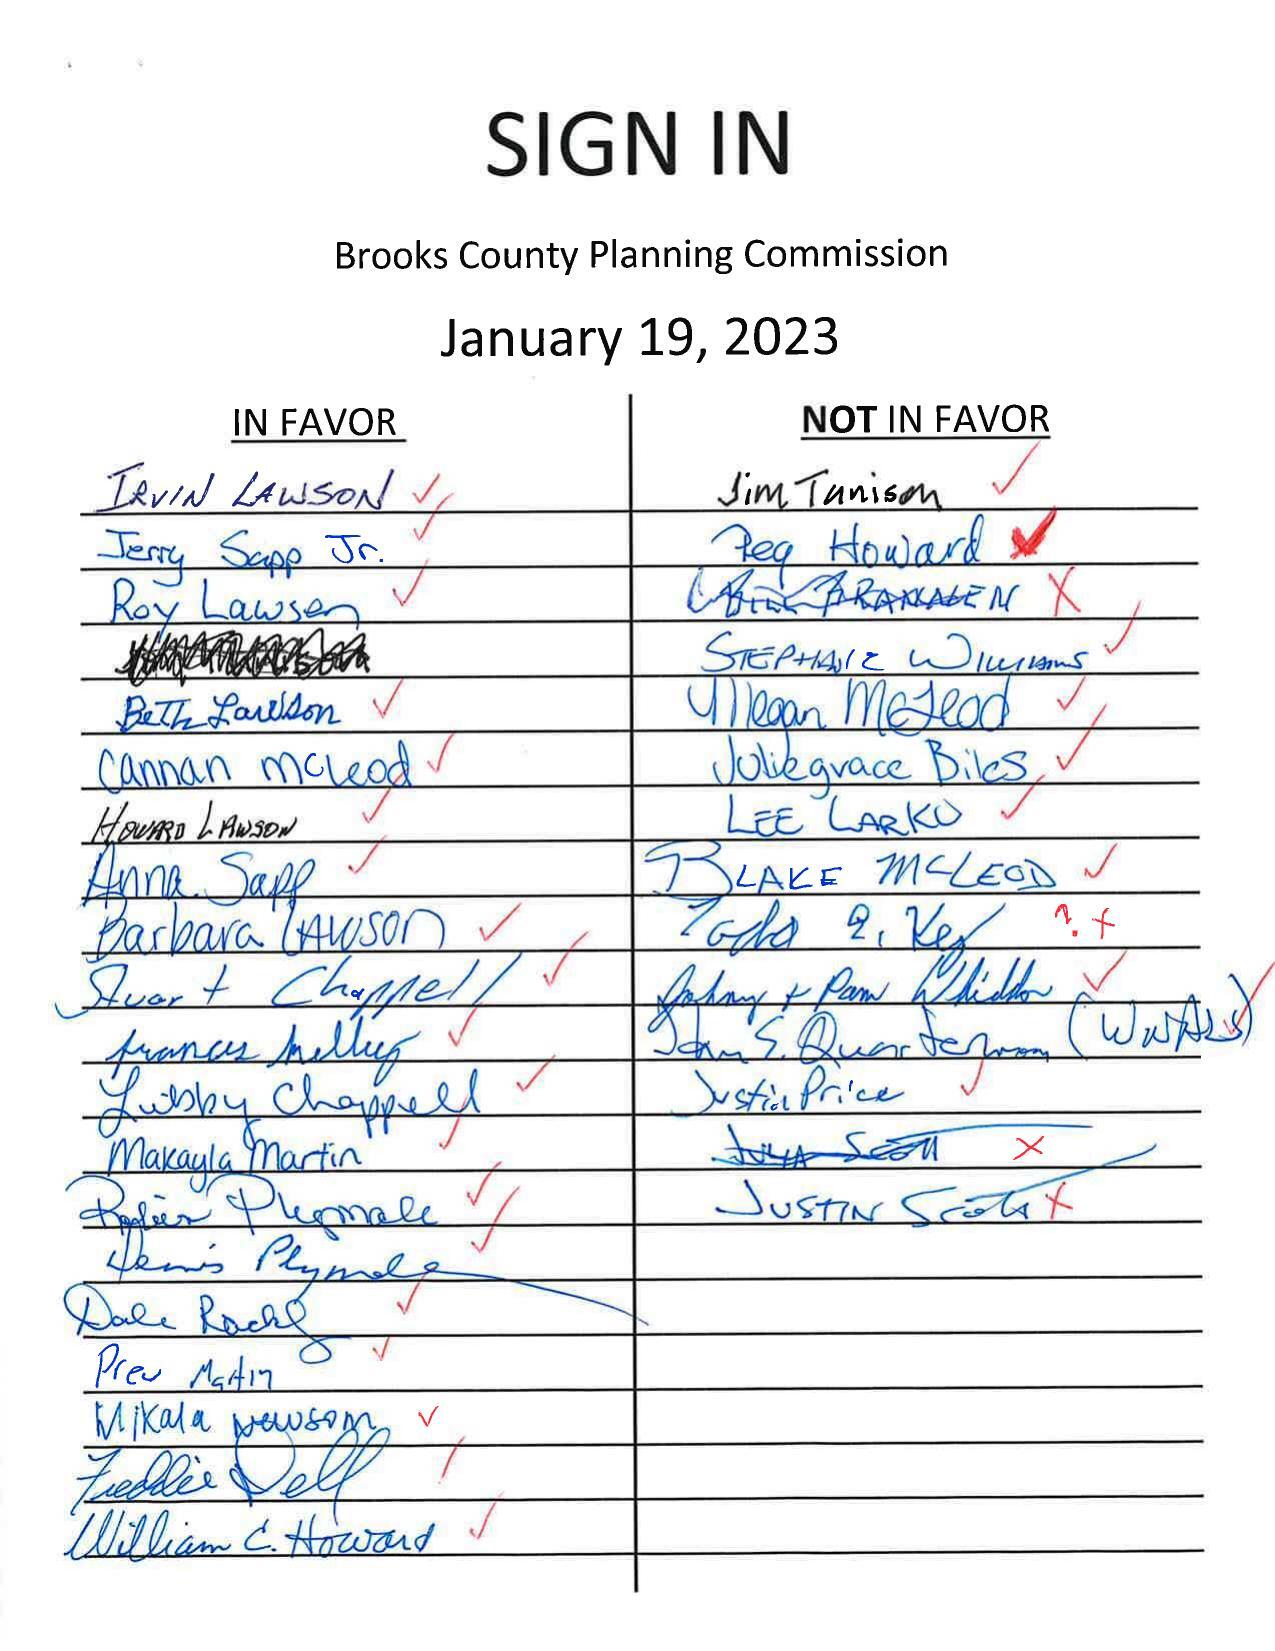 SIGN IN
Brooks County Planning Commission
January 19, 2023
IN FAVOR
IRVIN LAWSON
Jerry Sapp Jr.
Roy Lawson
Beth Lawson
Cannan McLeod
HOWARD LAWSON
Anna Sapp
Barbara LAWSON
Stuart Chappell
Frances
Chappell
Makayla Martin
Plymale
Dennis Plymale
Dale
Martin
Mikala Newsom
Freddie
William C. Howard
NOT IN FAVOR
Jim Tunison
Peg Howard
STEPHANIE WILLIAMS
Megan McLeod
Juliegrace Biles
LEE LARKO
BLAKE MCLEOD
?
Johnny + Pam Whiddon
John S. Quarterman (WWALS)
Justin Price
JUSTIN Scott